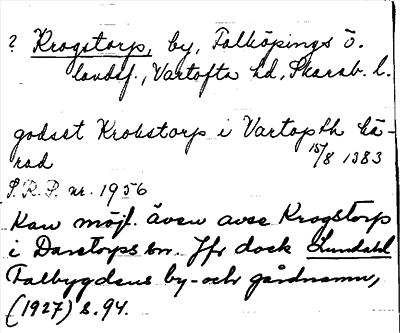 ? Krogstorp, by, Falköpings ö.
landsf., Vartofta hd, Skarab. l.
godset Krokstorp i Vartopth hä-
rad 15/8 1383
S.R.P. nr. 1956
Kan möjl. även avse Krogstorp
i Danstorps sn. Jfr dock Lundahl
Falbygdens by- och gårdnamn,
(1927) s. 94.